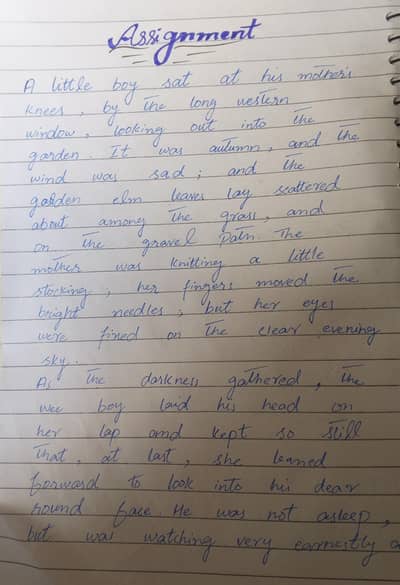 Assignment
A little boy sat at his mother's
knees, by the long western
window, looking out into the
garden. It was autumn, and the
wind was sad; and the
golden elm leaves lay scattered
about among the grass, and
on the gravel path. The
mother was knitting a little
stocking; her fingers moved the
bright needles; but her eyes
were fixed on the clear evening
sky.
As the darkness gathered, the
wee boy laid his head on
her lap and kept so still
that, at last, she leaned
forward to look into his dear
round face. He was not asleep,
but was watching very earnestly a